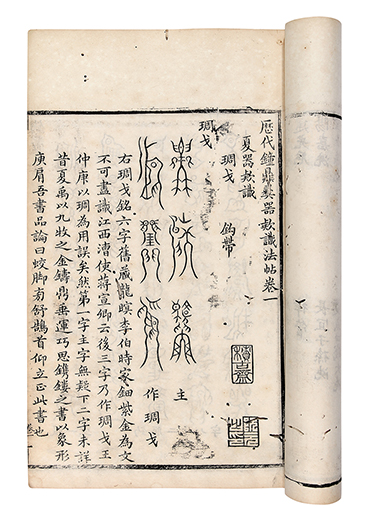 歷代鐘鼎彝器款識法帖卷一
夏器款識
琱戈　鉤帶
琱戈
主
作琱戈
右琱戈銘六字舊藏龍眠李伯時家鈿紫金為文
不可盡識江西漕使蔣宣卿云後三字乃作琱戈王
仲庚以琱為用誤矣然第一字主字無疑下二字未詳
昔夏禹以九牧之金鑄鼎垂運巧思鏤之書以象形
庾肩吾書品論曰蛟腳旁舒鵠首仰立正此書也
積古齋